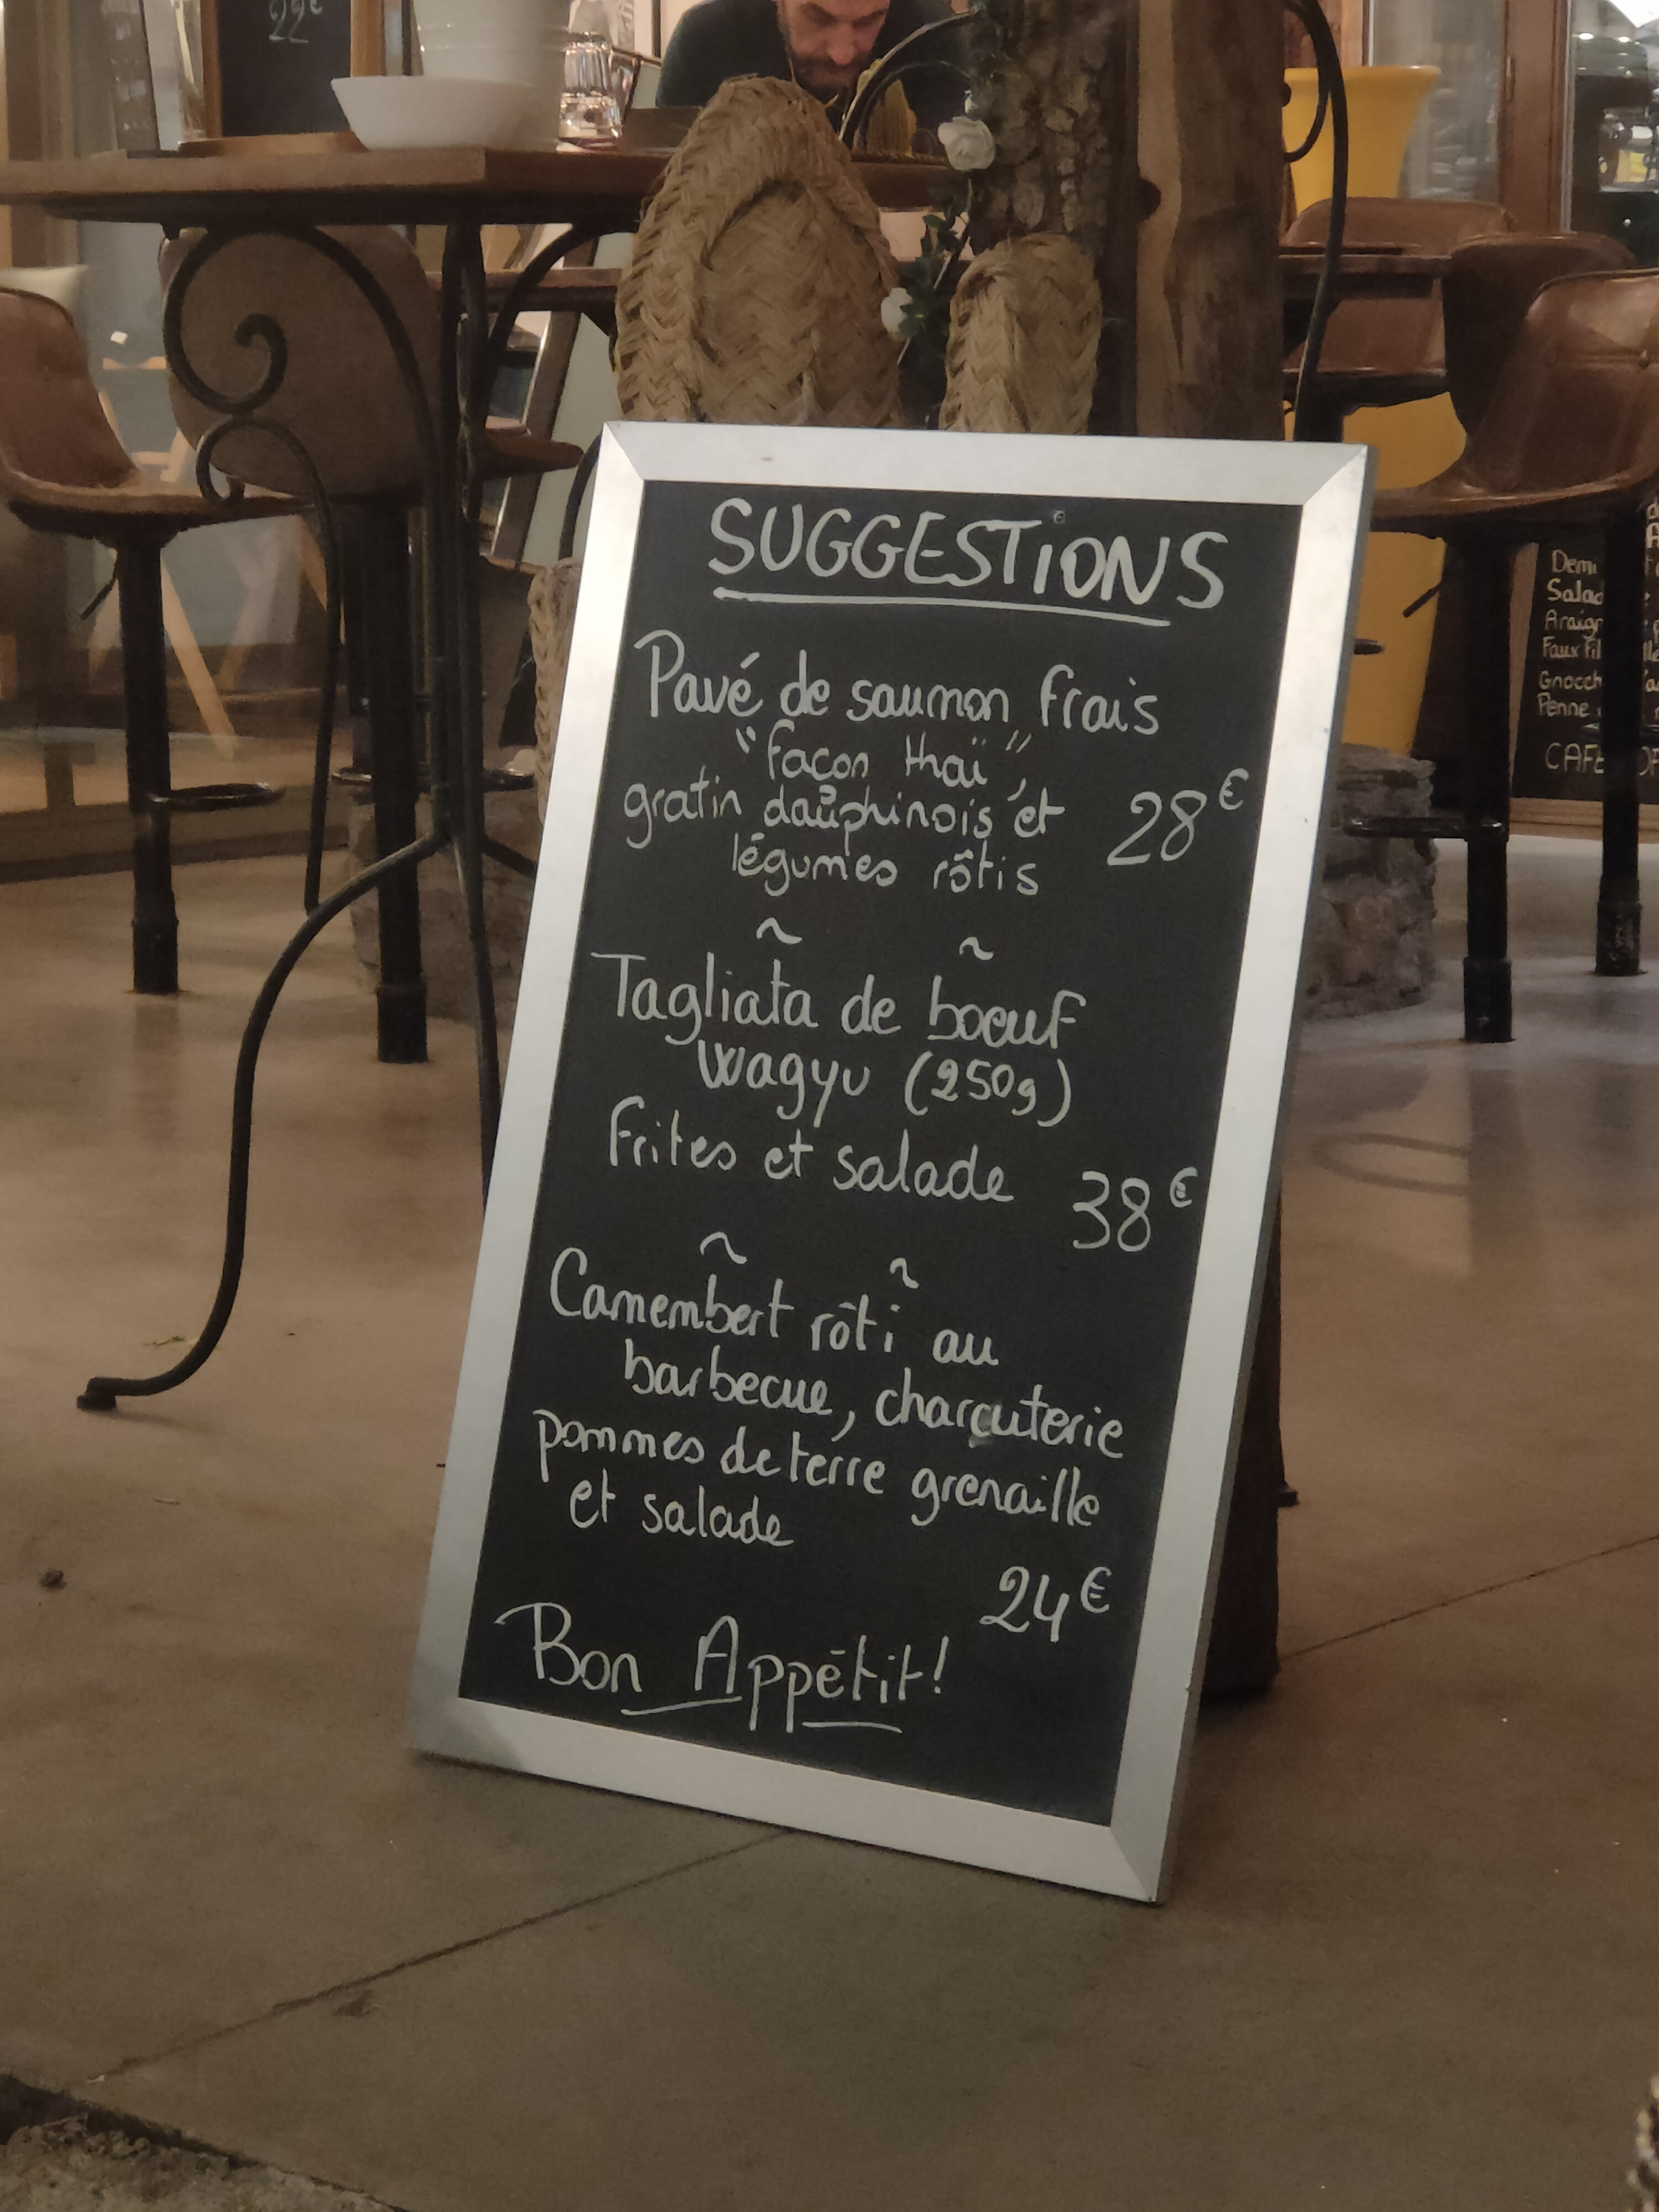 22€
SUGGESTIONS
Pavé de saumon frais
"façon thaï",
gratin dauphinois et
légumes rôtis
28€
~ ~
Tagliata de boeuf
Wagyu (250g)
Frites et salade
38€
~ ~
Camembert rôti au
barbecue, charcuterie
pommes de terre grenaille
et salade
24€
Bon Appétit!
Demi
Salad
Araign
Faux Fil
Gnocch
Penne
CAFE